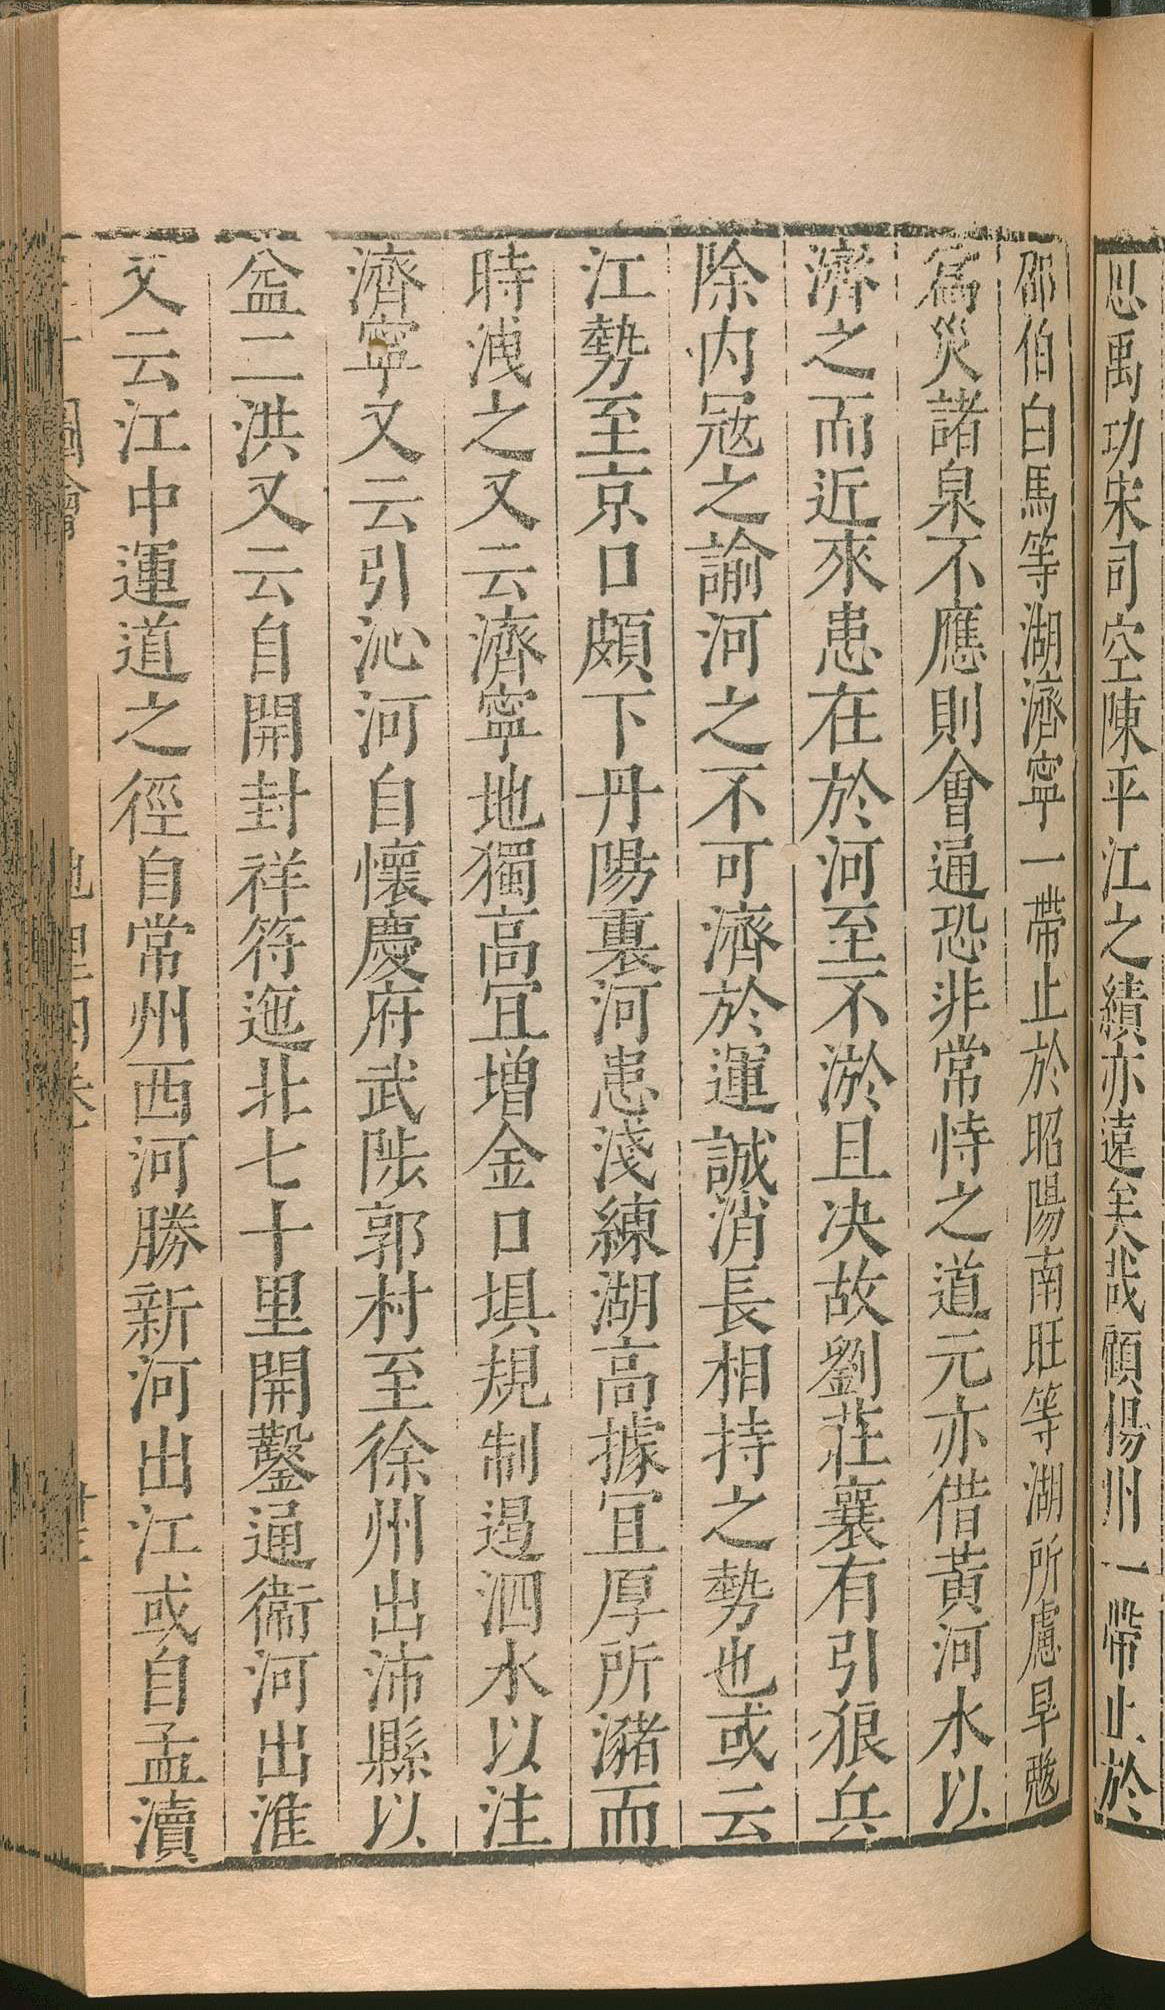 思禹功宋司空陳平江之績亦遠矣哉顧揚州一帶止於
邵伯白馬等湖濟寧一帶止於昭陽南旺等湖所慮旱魃
爲災諸泉不應則會通恐非常恃之道元亦借黃河水以
濟之而近來患在於河至不淤且决故劉莊襄有引狼兵
除内冦之諭河之不可濟於運誠消長相持之勢也或云
江勢至京口頗下丹陽裏河患淺練湖高據宜厚所瀦而
時洩之又云濟寧地獨高宜增金口垻規制遏泗水以注
濟寧又云引沁河自懷慶府武陟郭村至徐州出沛縣以
益二洪又云自開封祥符迤北七十里開鑿通衞河出淮
又云江中運道之徑自常州西河勝新河出江或自孟瀆
圖會
地理